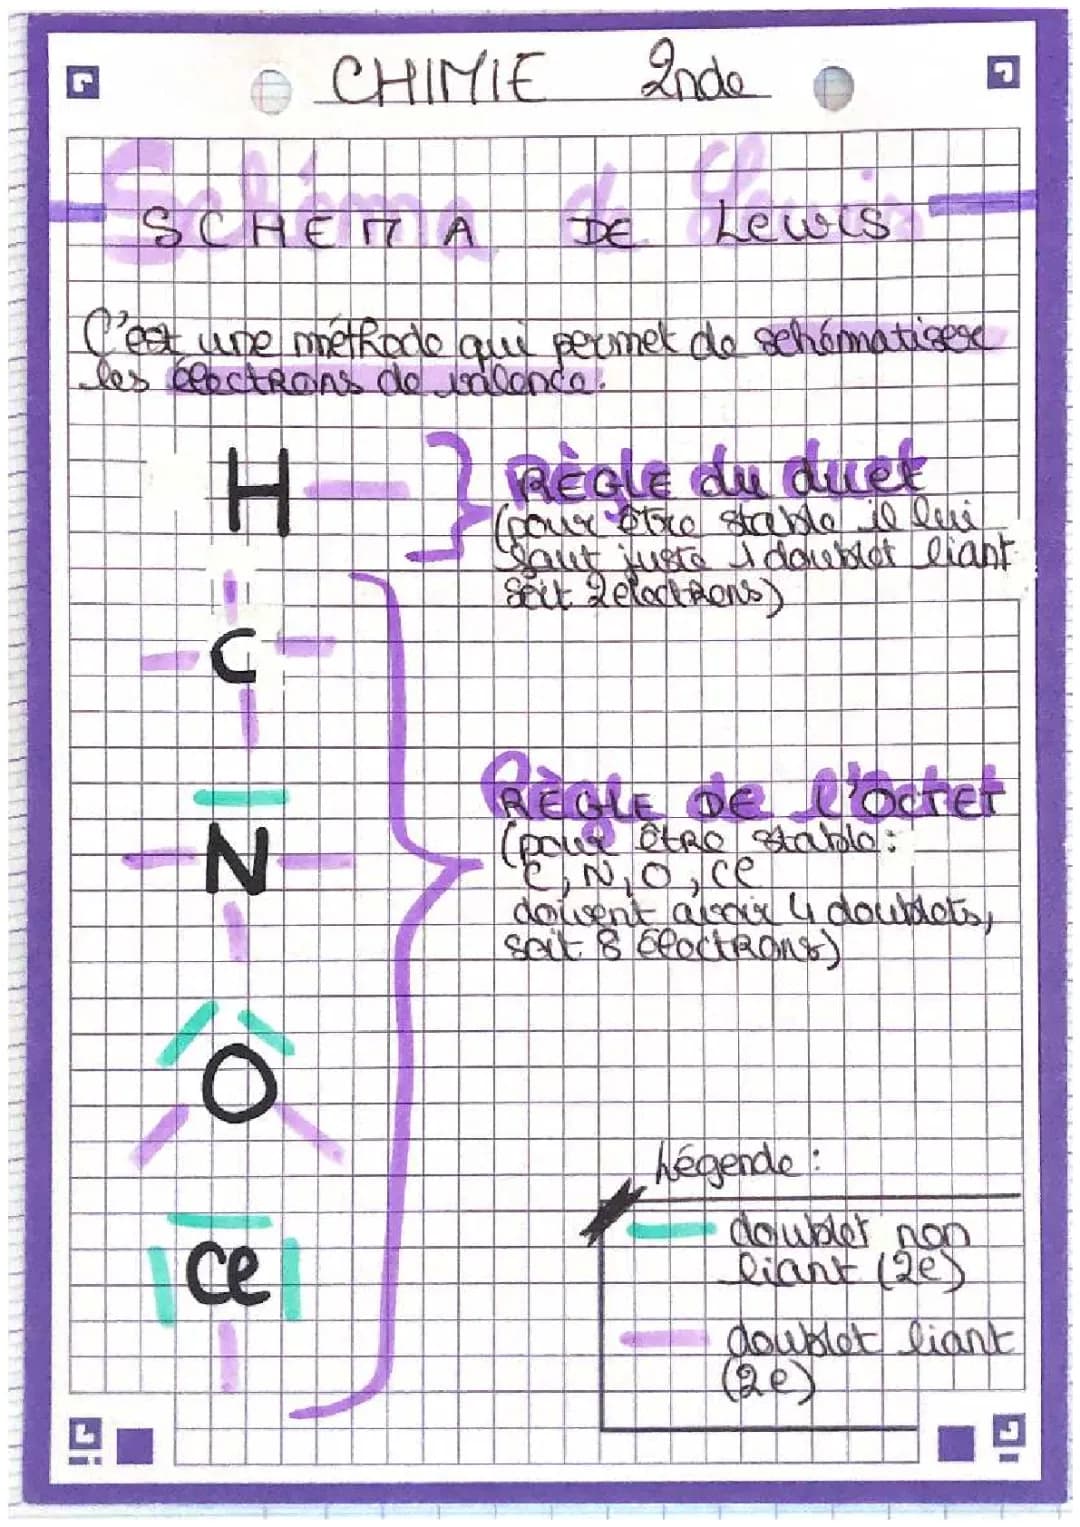 CHIMIE 2nde
Schéma de Lewis
SCHEMA DE Lewis
C'est une méthode qui permet de schématiser
les électrons de valence.
H
RÈGLE du duet
(pour être stable il lui
faut juste 1 doublet liant
soit 2 électrons)
C
N
RÈGLE DE l'Octet
(pour être stable :
C, N, O, Cl
doivent avoir 4 doublets,
soit 8 électrons)
O
Légende :
Cl
doublet non
liant (2e)
doublet liant
(2e)